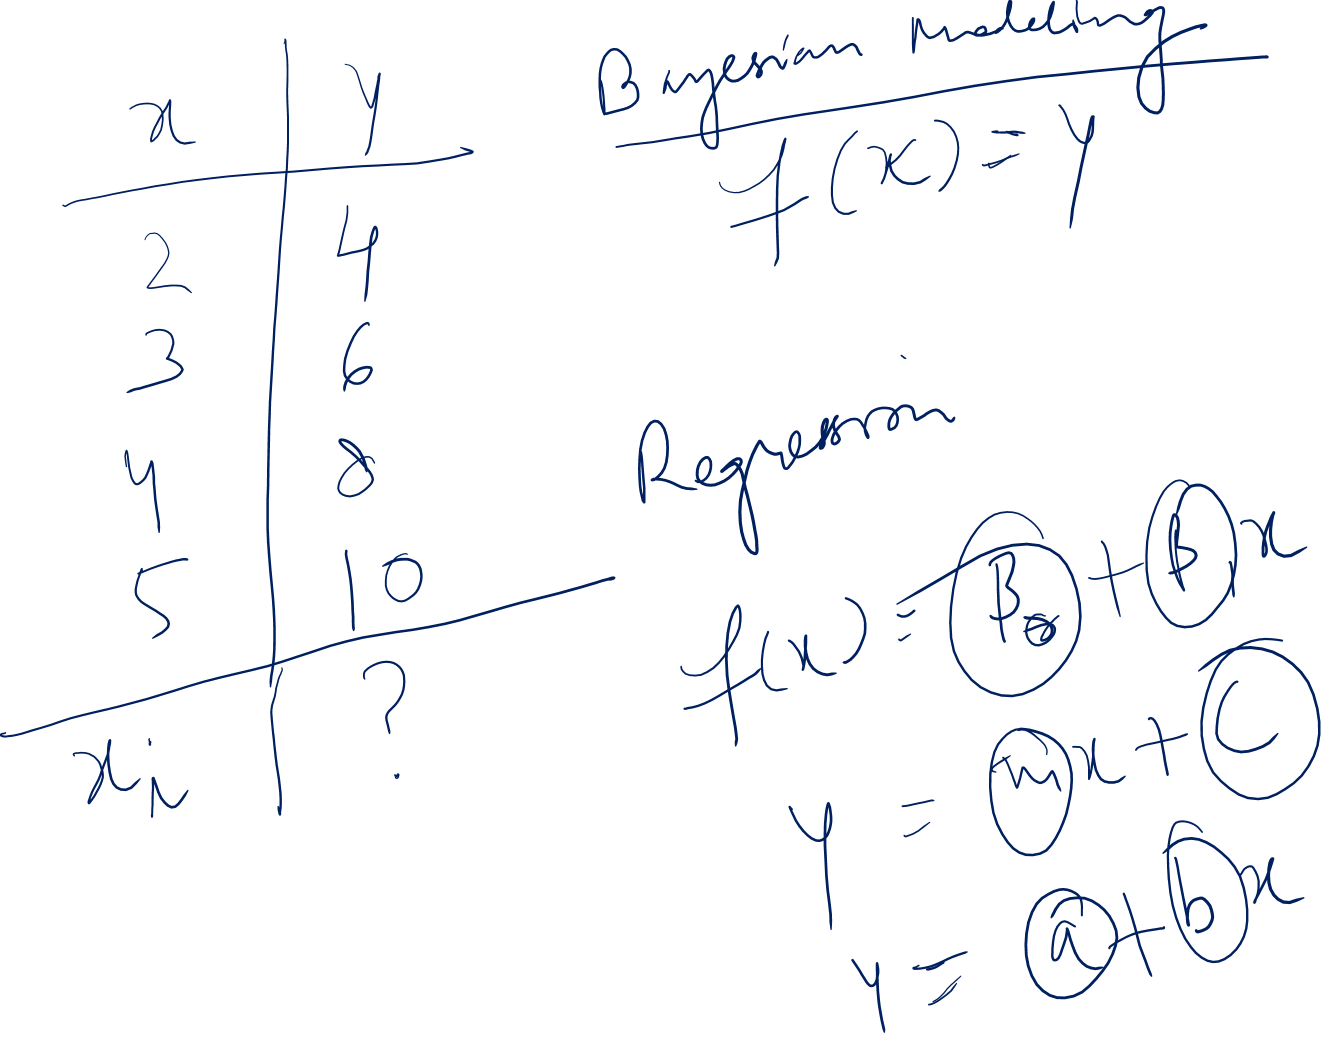 x y
2 4
3 6
4 8
5 10
xi ?
Bayesian Modeling
f(x) = y
Regression
f(x) = β₀ + β₁x
y = mx + c
y = a + bx